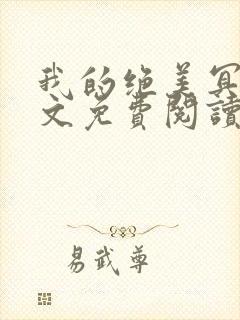 我的绝美冥
文免费閱讀
易武尊